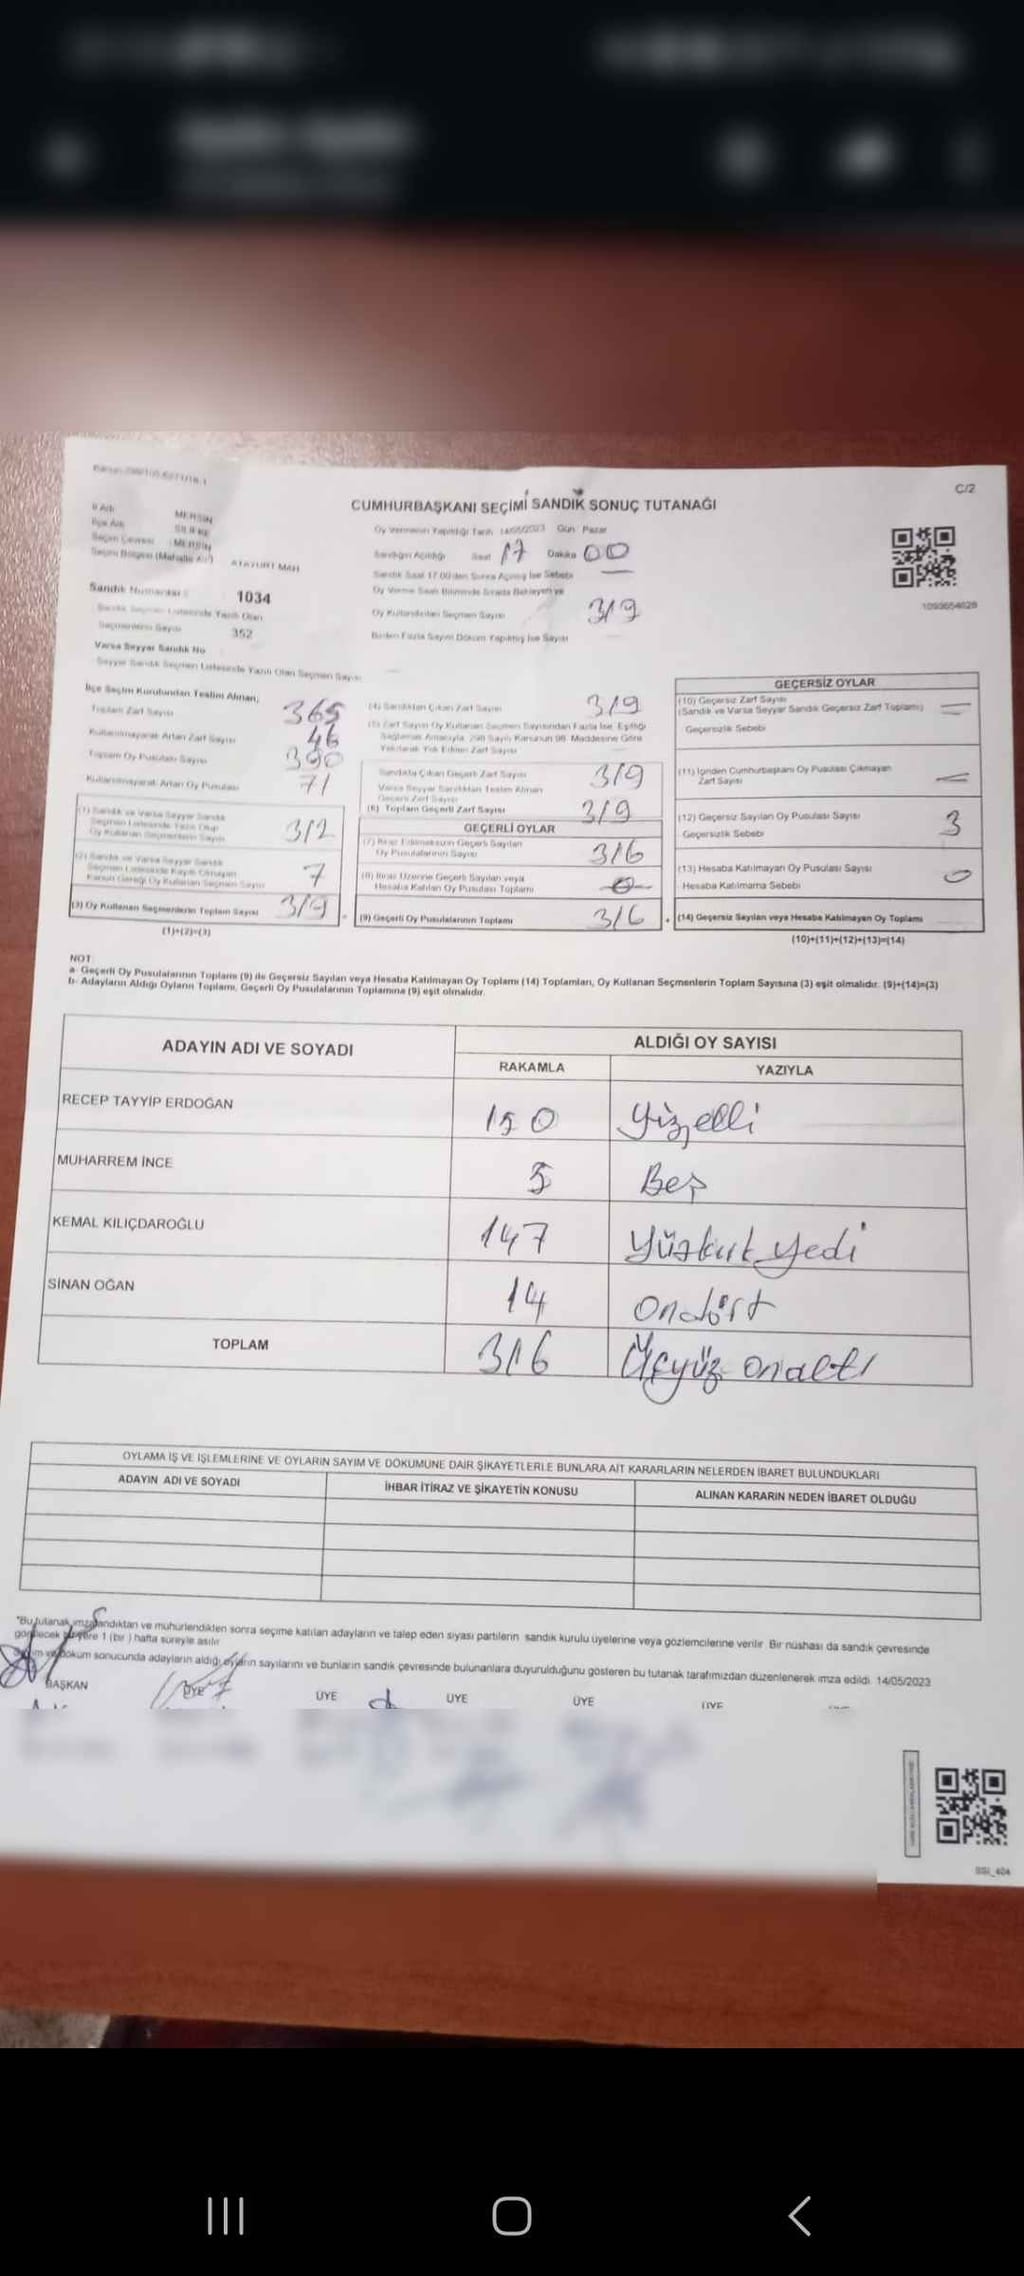 C/2
CUMHURBAŞKANI SEÇİMİ SANDIK SONUÇ TUTANAĞI
Oy Vermenin Yapıldığı Tarih 14/05/2023 Gün Pazar
İl Adı MERSİN
İlçe Adı SİLİFKE
Seçim Çevresi MERSİN
Seçim Bölgesi (Mahalle Adı) ATAYURT MAH
Sandığın Açıldığı Saat 17 Dakika 00
Sandık Saat 17.00'den Sonra Açılmış İse Sebebi
Sandık Numarası 1034
Sandık Seçmen Listesinde Yazılı Olan
Seçmenlerin Sayısı 352
Oy Kullandırılan Seçmen Sayısı 319
Birden Fazla Sayım Döküm Yapılmış İse Sayısı
1093654628
Varsa Seyyar Sandık No
Seyyar Sandık Seçmen Listesinde Yazılı Olan Seçmen Sayısı
İlçe Seçim Kurulundan Teslim Alınan,
Toplam Zarf Sayısı 365
Kullanılmayarak Artan Zarf Sayısı 46
Toplam Oy Pusulası Sayısı 390
Kullanılmayarak Artan Oy Pusulası 71
(1) Sandık ve Varsa Seyyar Sandık
Seçmen Listesinde Yazılı Olup
Oy Kullanan Seçmenlerin Sayısı 312
(2) Sandık ve Varsa Seyyar Sandık
Seçmen Listesinde Kayıtlı Olmayan
Kanun Gereği Oy Kullanan Seçmen Sayısı 7
(3) Oy Kullanan Seçmenlerin Toplam Sayısı 319
(1)+(2)=(3)
(4) Sandıktan Çıkan Zarf Sayısı 319
(5) Zarf Sayısı Oy Kullanan Seçmen Sayısından Fazla İse, Eşitliği
Sağlamak Amacıyla, 298 Sayılı Kanunun 98. Maddesine Göre
Yakılarak Yok Edilen Zarf Sayısı
Sandıkta Çıkan Geçerli Zarf Sayısı 319
Varsa Seyyar Sandıktan Teslim Alınan
Geçerli Zarf Sayısı
(6) Toplam Geçerli Zarf Sayısı 319
GEÇERLİ OYLAR
(7) İtiraz Edilmeksizin Geçerli Sayılan
Oy Pusulalarının Sayısı 316
(8) İtiraz Üzerine Geçerli Sayılan veya
Hesaba Katılan Oy Pusulası Toplamı 0
(9) Geçerli Oy Pusulalarının Toplamı 316
GEÇERSİZ OYLAR
(10) Geçersiz Zarf Sayısı
(Sandık ve Varsa Seyyar Sandık Geçersiz Zarf Toplamı)
Geçersizlik Sebebi
(11) İçinden Cumhurbaşkanı Oy Pusulası Çıkmayan
Zarf Sayısı
(12) Geçersiz Sayılan Oy Pusulası Sayısı 3
Geçersizlik Sebebi
(13) Hesaba Katılmayan Oy Pusulası Sayısı 0
Hesaba Katılmama Sebebi
(14) Geçersiz Sayılan veya Hesaba Katılmayan Oy Toplamı
(10)+(11)+(12)+(13)=(14)
NOT
a- Geçerli Oy Pusulalarının Toplamı (9) ile Geçersiz Sayılan veya Hesaba Katılmayan Oy Toplamı (14) Toplamları, Oy Kullanan Seçmenlerin Toplam Sayısına (3) eşit olmalıdır. (9)+(14)=(3)
b- Adayların Aldığı Oyların Toplamı, Geçerli Oy Pusulalarının Toplamına (9) eşit olmalıdır.
ADAYIN ADI VE SOYADI ALDIĞI OY SAYISI
RAKAMLA YAZIYLA
RECEP TAYYİP ERDOĞAN 150 Yüzelli
MUHARREM İNCE 5 Beş
KEMAL KILIÇDAROĞLU 147 Yüzkırk yedi
SİNAN OĞAN 14 Ondört
TOPLAM 316 Üçyüz onaltı
OYLAMA İŞ VE İŞLEMLERİNE VE OYLARIN SAYIM VE DÖKÜMÜNE DAİR ŞİKAYETLERLE BUNLARA AİT KARARLARIN NELERDEN İBARET BULUNDUKLARI
ADAYIN ADI VE SOYADI İHBAR İTİRAZ VE ŞİKAYETİN KONUSU ALINAN KARARIN NEDEN İBARET OLDUĞU
*Bu tutanak imzalandıktan ve mühürlendikten sonra seçime katılan adayların ve talep eden siyasi partilerin sandık kurulu üyelerine veya gözlemcilerine verilir. Bir nüshası da sandık çevresinde
görülecek bir yere 1 (bir) hafta süreyle asılır
Sayım ve döküm sonucunda adayların aldığı oyların sayılarını ve bunların sandık çevresinde bulunanlara duyurulduğunu gösteren bu tutanak tarafımızdan düzenlenerek imza edildi. 14/05/2023
BAŞKAN ÜYE ÜYE ÜYE ÜYE ÜYE
SSI_404